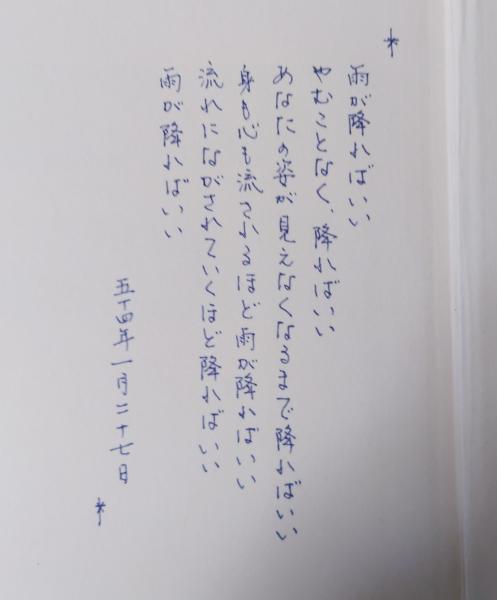 *
雨が降ればいい
やむことなく、降ればいい
あなたの姿が見えなくなるまで降ればいい
身も心も流されるほど雨が降ればいい
流れにながされていくほど降ればいい
雨が降ればいい
五十四年一月二十七日
*